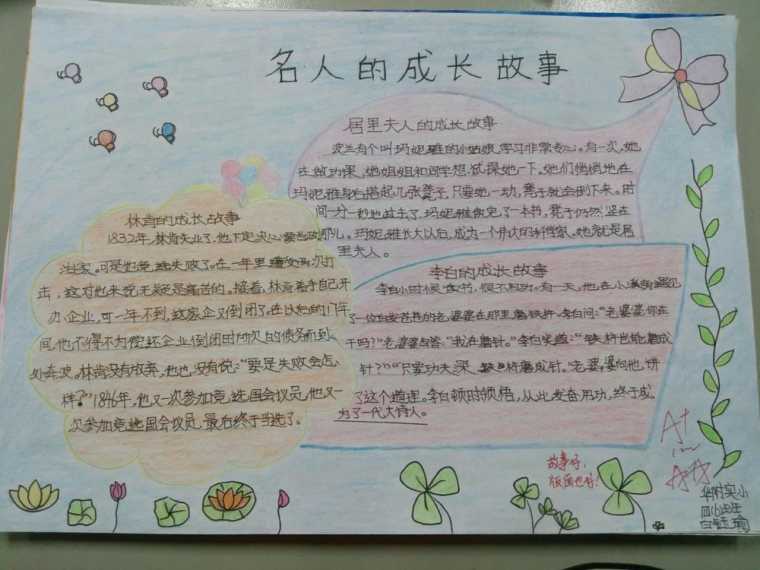 名人的成长故事
居里夫人的成长故事
波兰有个叫玛妮雅的小姑娘,学习非常专心。有一次,她
在做功课,她姐姐和同学想试探她一下。她们悄悄地在
玛妮雅身后搭起几张凳子,只要她一动,凳子就会倒下来。时
间一分一秒地过去了,玛妮雅读完了一本书,凳子仍然竖在
那儿。玛妮雅长大以后,成为一个伟大的科学家。她就是居
里夫人。
林肯的成长故事
1832年,林肯失业了,他下定决心要当政
治家。可是他竞选失败了。在一年里遭受两次打
击,这对他来说无疑是痛苦的。接着,林肯着手自己开
办企业,可一年不到,这家企又倒闭了。在以后的17年
间,他不得不为偿还企业倒闭时所欠的债务而到
处奔波。林肯没有放弃,他也没有说:“要是失败会怎
样?”1846年,他又一次参加竞选国会议员,他又一
次参加竞选国会议员,最后终于当选了。
李白的成长故事
李白小时候读书,很不用功。有一天,他在小溪街遇见
了一位白发苍苍的老婆婆在那里磨铁杵。李白问:“老婆婆你在
干吗?”老婆婆答:“我在磨针。”李白笑道:“铁杵也能磨成
针?”“只要功夫深,铁杵磨成针。”老婆婆向他讲
了这个道理。李白顿时领悟,从此发奋用功,终于成
为了一代大诗人。
故事好,
版面也好!
A+
华附实小
四(6)班